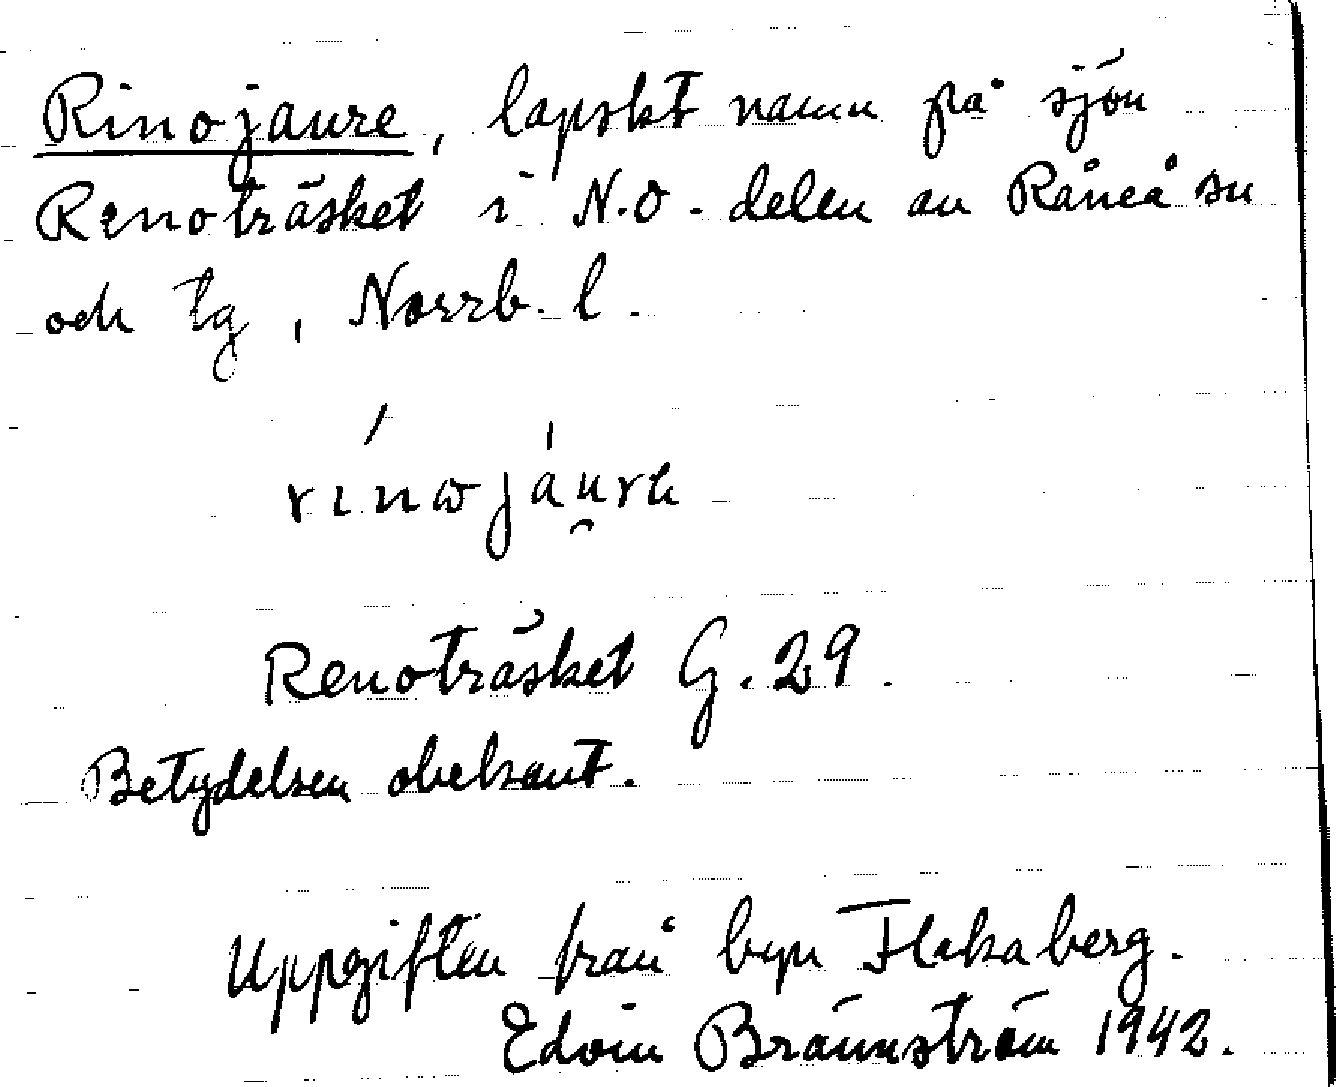 Rinojaure, lapskt namn på sjön
Renoträsket i N.O. delen av Råneå sn
och tg, Norrb. l.
rınωjáu̯rε
Renoträsket G. 29.
Betydelsen obekant.
Uppgiften från byn Flakaberg.
Edvin Brännström 1942.